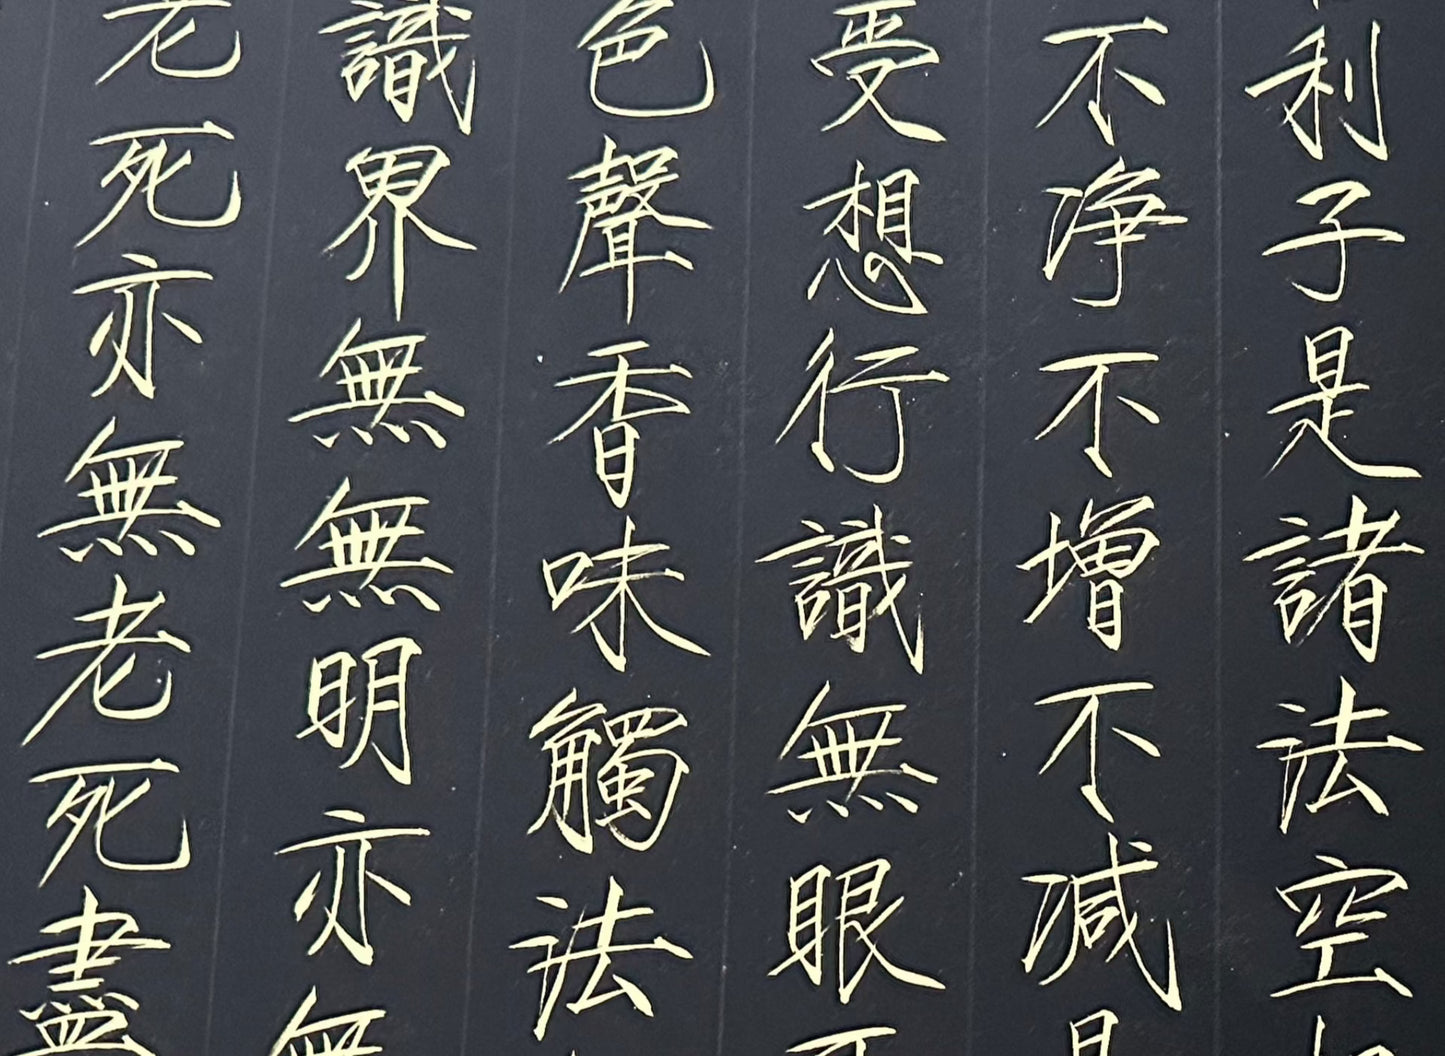 利子是諸法空
不淨不增不減
受想行識無眼
色聲香味觸法
識界無無明亦無
老死亦無老死盡